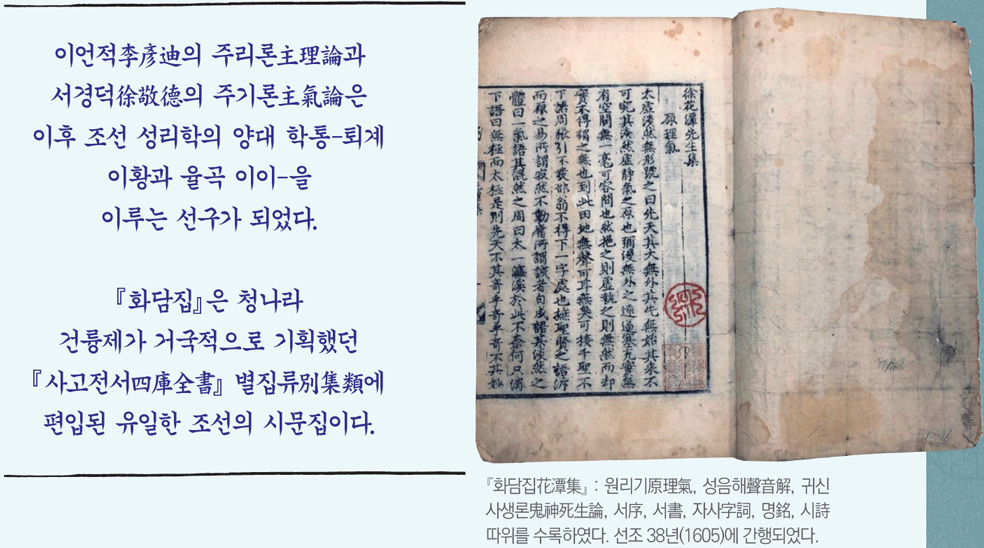 이언적李彦迪의 주리론主理論과
서경덕徐敬德의 주기론主氣論은
이후 조선 성리학의 양대 학통-퇴계
이황과 율곡 이이-을
이루는 선구가 되었다.
『화담집』은 청나라
건륭제가 거국적으로 기획했던
『사고전서四庫全書』 별집류別集類에
편입된 유일한 조선의 시문집이다.
徐花潭先生集
原理氣
太虛湛然無形號之曰先天其大無外其先無始其來不
可究其湛然虛靜氣之原也彌漫無外之遠逼塞充實無
有空闕無一毫可容間也然挹之則虛執之則無然而却
實不得謂之無也到此田地無聲可耳無臭可接千聖不
下語周張引不發邵翁不得下一字處也摭聖賢之語泝
而原之易所謂寂然不動庸所謂誠者自成語其湛然之
體曰一氣語其混然之周曰太一濂溪於此不奈何只消
下語曰無極而太極是則先天不其奇乎奇乎奇不其妙
『화담집花潭集』 : 원리기原理氣, 성음해聲音解, 귀신
사생론鬼神死生論, 서序, 서書, 자사字詞, 명銘, 시詩
따위를 수록하였다. 선조 38년(1605)에 간행되었다.